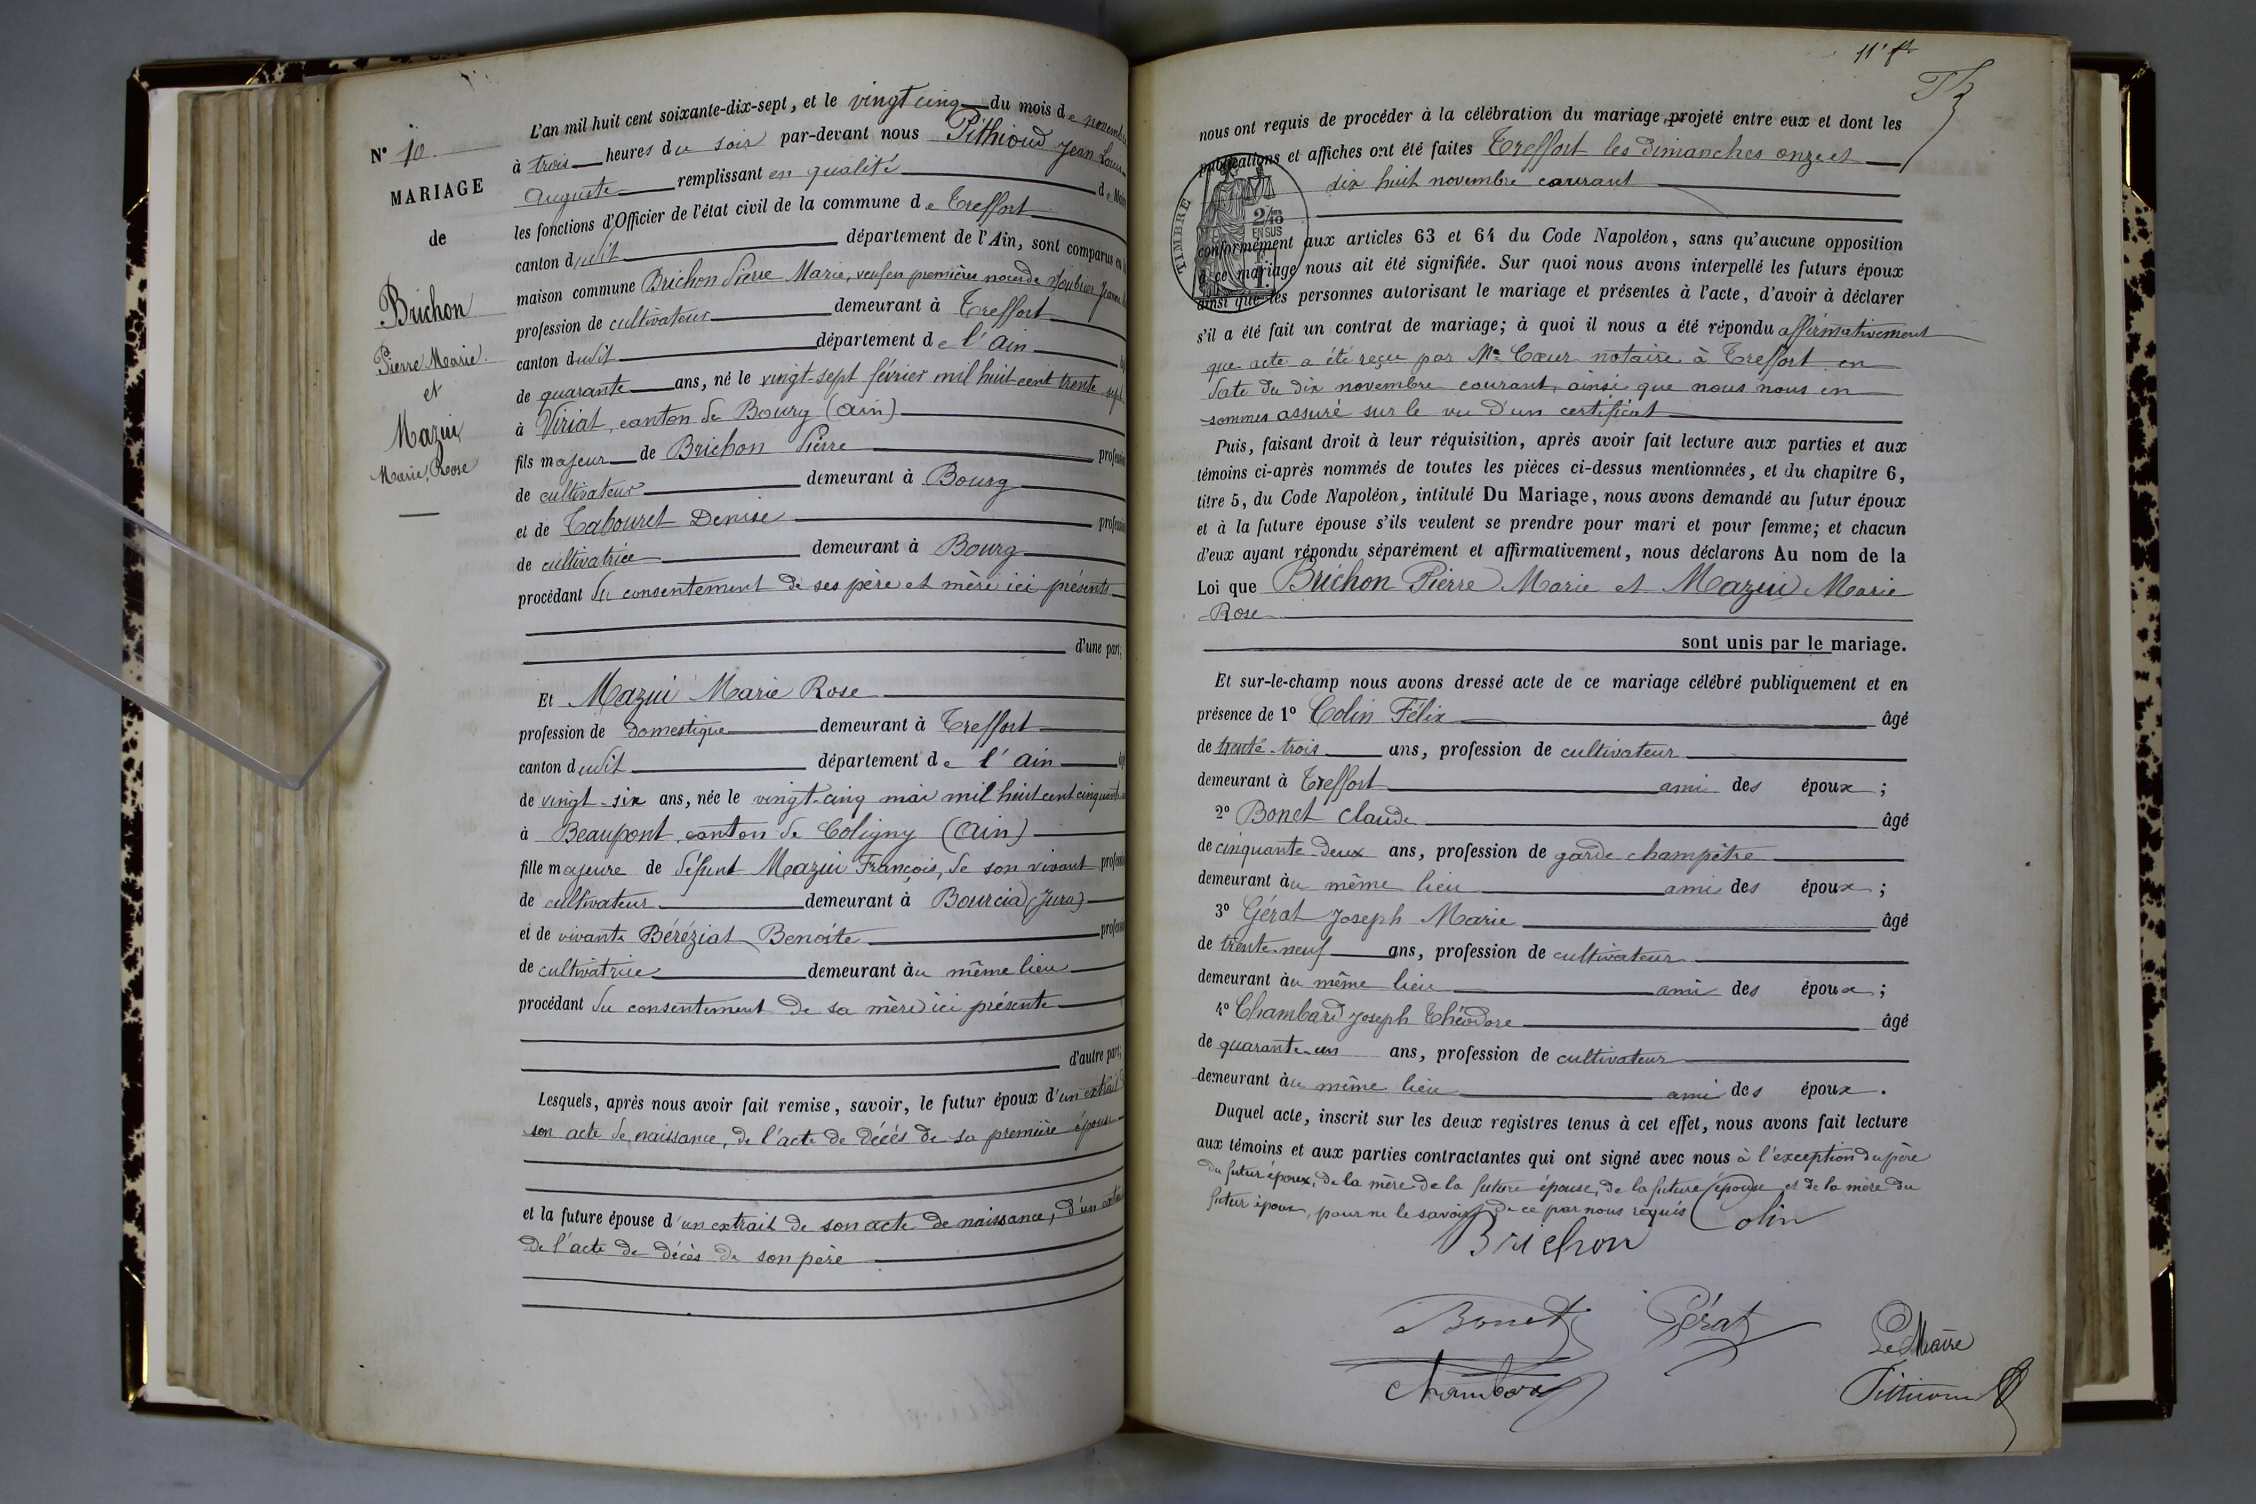 N° 10
MARIAGE
de
Brichon
Pierre Marie
et
Mazui
Marie, Rose
L'an mil huit cent soixante-dix-sept, et le vingt cinq du mois de novembre
à trois heures du soir par-devant nous Pithioud Jean Louis
Auguste remplissant en qualité de Maire
les fonctions d'Officier de l'état civil de la commune de Treffort
canton dudit département de l'Ain, sont comparus en la
maison commune Brichon Pierre Marie, veuf en premières noces de Joubier Jeanne
profession de cultivateur demeurant à Treffort
canton dudit département de l'Ain
de quarante ans, né le vingt-sept février mil huit cent trente sept
à Viriat, canton de Bourg (Ain)
fils majeur de Brichon Pierre profession
de cultivateur demeurant à Bourg
et de Tabouret Denise profession
de cultivatrice demeurant à Bourg
procédant du consentement de ses père et mère ici présents
d'une part;
Et Mazui Marie Rose
profession de domestique demeurant à Treffort
canton dudit département de l'Ain
de vingt-six ans, née le vingt-cinq mai mil huit cent cinquante
à Beaupont, canton de Coligny (Ain)
fille majeure de défunt Mazui François, de son vivant profession
de cultivateur demeurant à Bourcia (Jura)
et de vivante Béréziat Benoite profession
de cultivatrice demeurant au même lieu
procédant du consentement de sa mère ici présente
d'autre part;
Lesquels, après nous avoir fait remise, savoir, le futur époux d'un extrait de
son acte de naissance, de l'acte de décès de sa première épouse
et la future épouse d'un extrait de son acte de naissance, d'un extrait
de l'acte de décès de son père
11e ft
nous ont requis de procéder à la célébration du mariage projeté entre eux et dont les
publications et affiches ont été faites Treffort les dimanches onze et
dix huit novembre courant
TIMBRE
2/10 EN SUS
1 F.
conformément aux articles 63 et 64 du Code Napoléon, sans qu'aucune opposition
à ce mariage nous ait été signifiée. Sur quoi nous avons interpellé les futurs époux
ainsi que les personnes autorisant le mariage et présentes à l'acte, d'avoir à déclarer
s'il a été fait un contrat de mariage; à quoi il nous a été répondu affirmativement
que acte a été reçu par Me Cœur notaire à Treffort en
date du dix novembre courant, ainsi que nous nous en
sommes assuré sur le vu d'un certificat
Puis, faisant droit à leur réquisition, après avoir fait lecture aux parties et aux
témoins ci-après nommés de toutes les pièces ci-dessus mentionnées, et du chapitre 6,
titre 5, du Code Napoléon, intitulé Du Mariage, nous avons demandé au futur époux
et à la future épouse s'ils veulent se prendre pour mari et pour femme; et chacun
d'eux ayant répondu séparément et affirmativement, nous déclarons Au nom de la
Loi que Brichon Pierre Marie et Mazui Marie
Rose
sont unis par le mariage.
Et sur-le-champ nous avons dressé acte de ce mariage célébré publiquement et en
présence de 1° Colin Félix âgé
de trente-trois ans, profession de cultivateur
demeurant à Treffort ami des époux;
2° Bonet Claude âgé
de cinquante-deux ans, profession de garde champêtre
demeurant au même lieu ami des époux;
3° Gérat Joseph Marie âgé
de trente-neuf ans, profession de cultivateur
demeurant au même lieu ami des époux;
4° Chambard Joseph Théodore âgé
de quarante-un ans, profession de cultivateur
demeurant au même lieu ami des époux.
Duquel acte, inscrit sur les deux registres tenus à cet effet, nous avons fait lecture
aux témoins et aux parties contractantes qui ont signé avec nous à l'exception du père
du futur époux, de la mère de la future épouse, de la future épouse et de la mère du
futur époux, pour ne le savoir de ce par nous requis
Colin
Brichon
Bonet
Gérat
Chambard
Le Maire
Pithioud